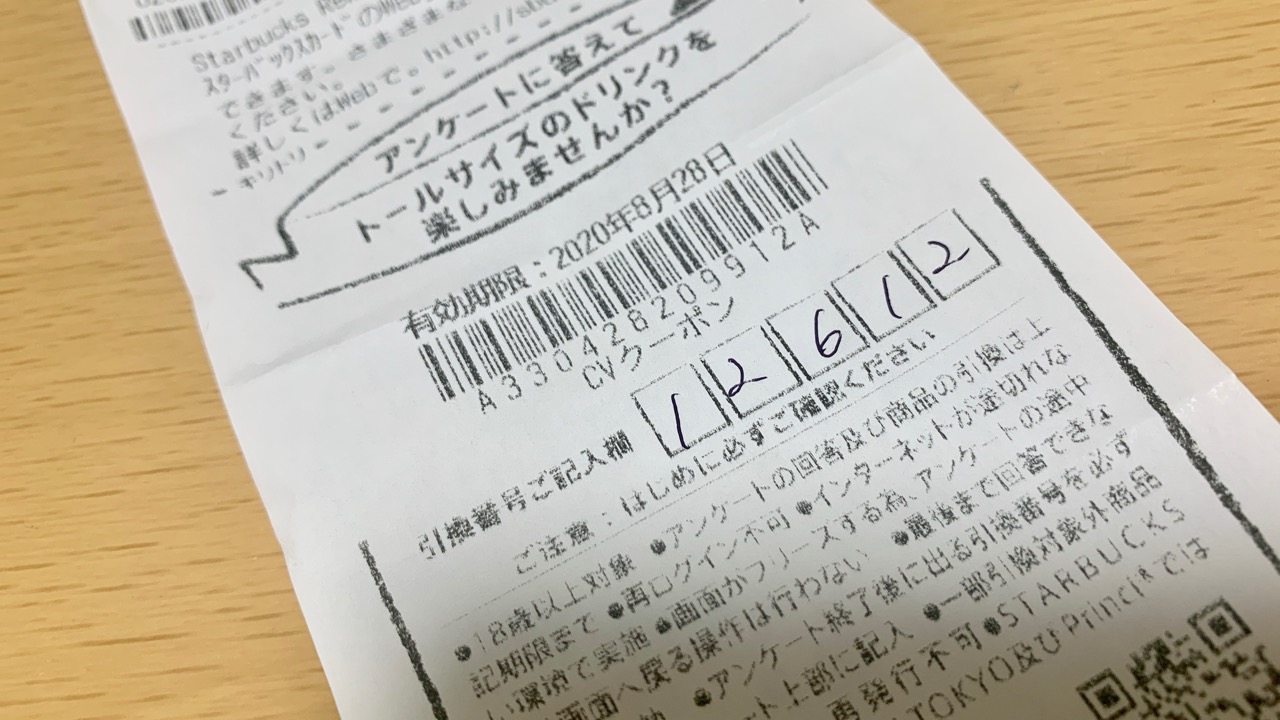 Starbucks Re
ｽﾀｰﾊﾞｯｸｽｶｰﾄﾞのWeb
できます。さまざまな
ください。
詳しくはWebで。http://sb
- キリトリ -
アンケートに答えて
トールサイズのドリンクを
楽しみませんか？
有効期限：2020年8月28日
A330428209912A
CVクーポン
引換番号ご記入欄 1 2 6 1 2
ご注意：はじめに必ずご確認ください
●18歳以上対象 ●アンケートの回答及び商品の引換は上
記期限まで ●再ログイン不可 ●インターネットが途切れな
い環境で実施 ●画面がフリーズする為、アンケートの途中
画面へ戻る操作は行わない ●最後まで回答できな
●アンケート終了後に出る引換番号を必ず
ート上部に記入 ●一部引換対象外商品
再発行不可 ●STARBUCKS
TOKYO及びPrinci®では